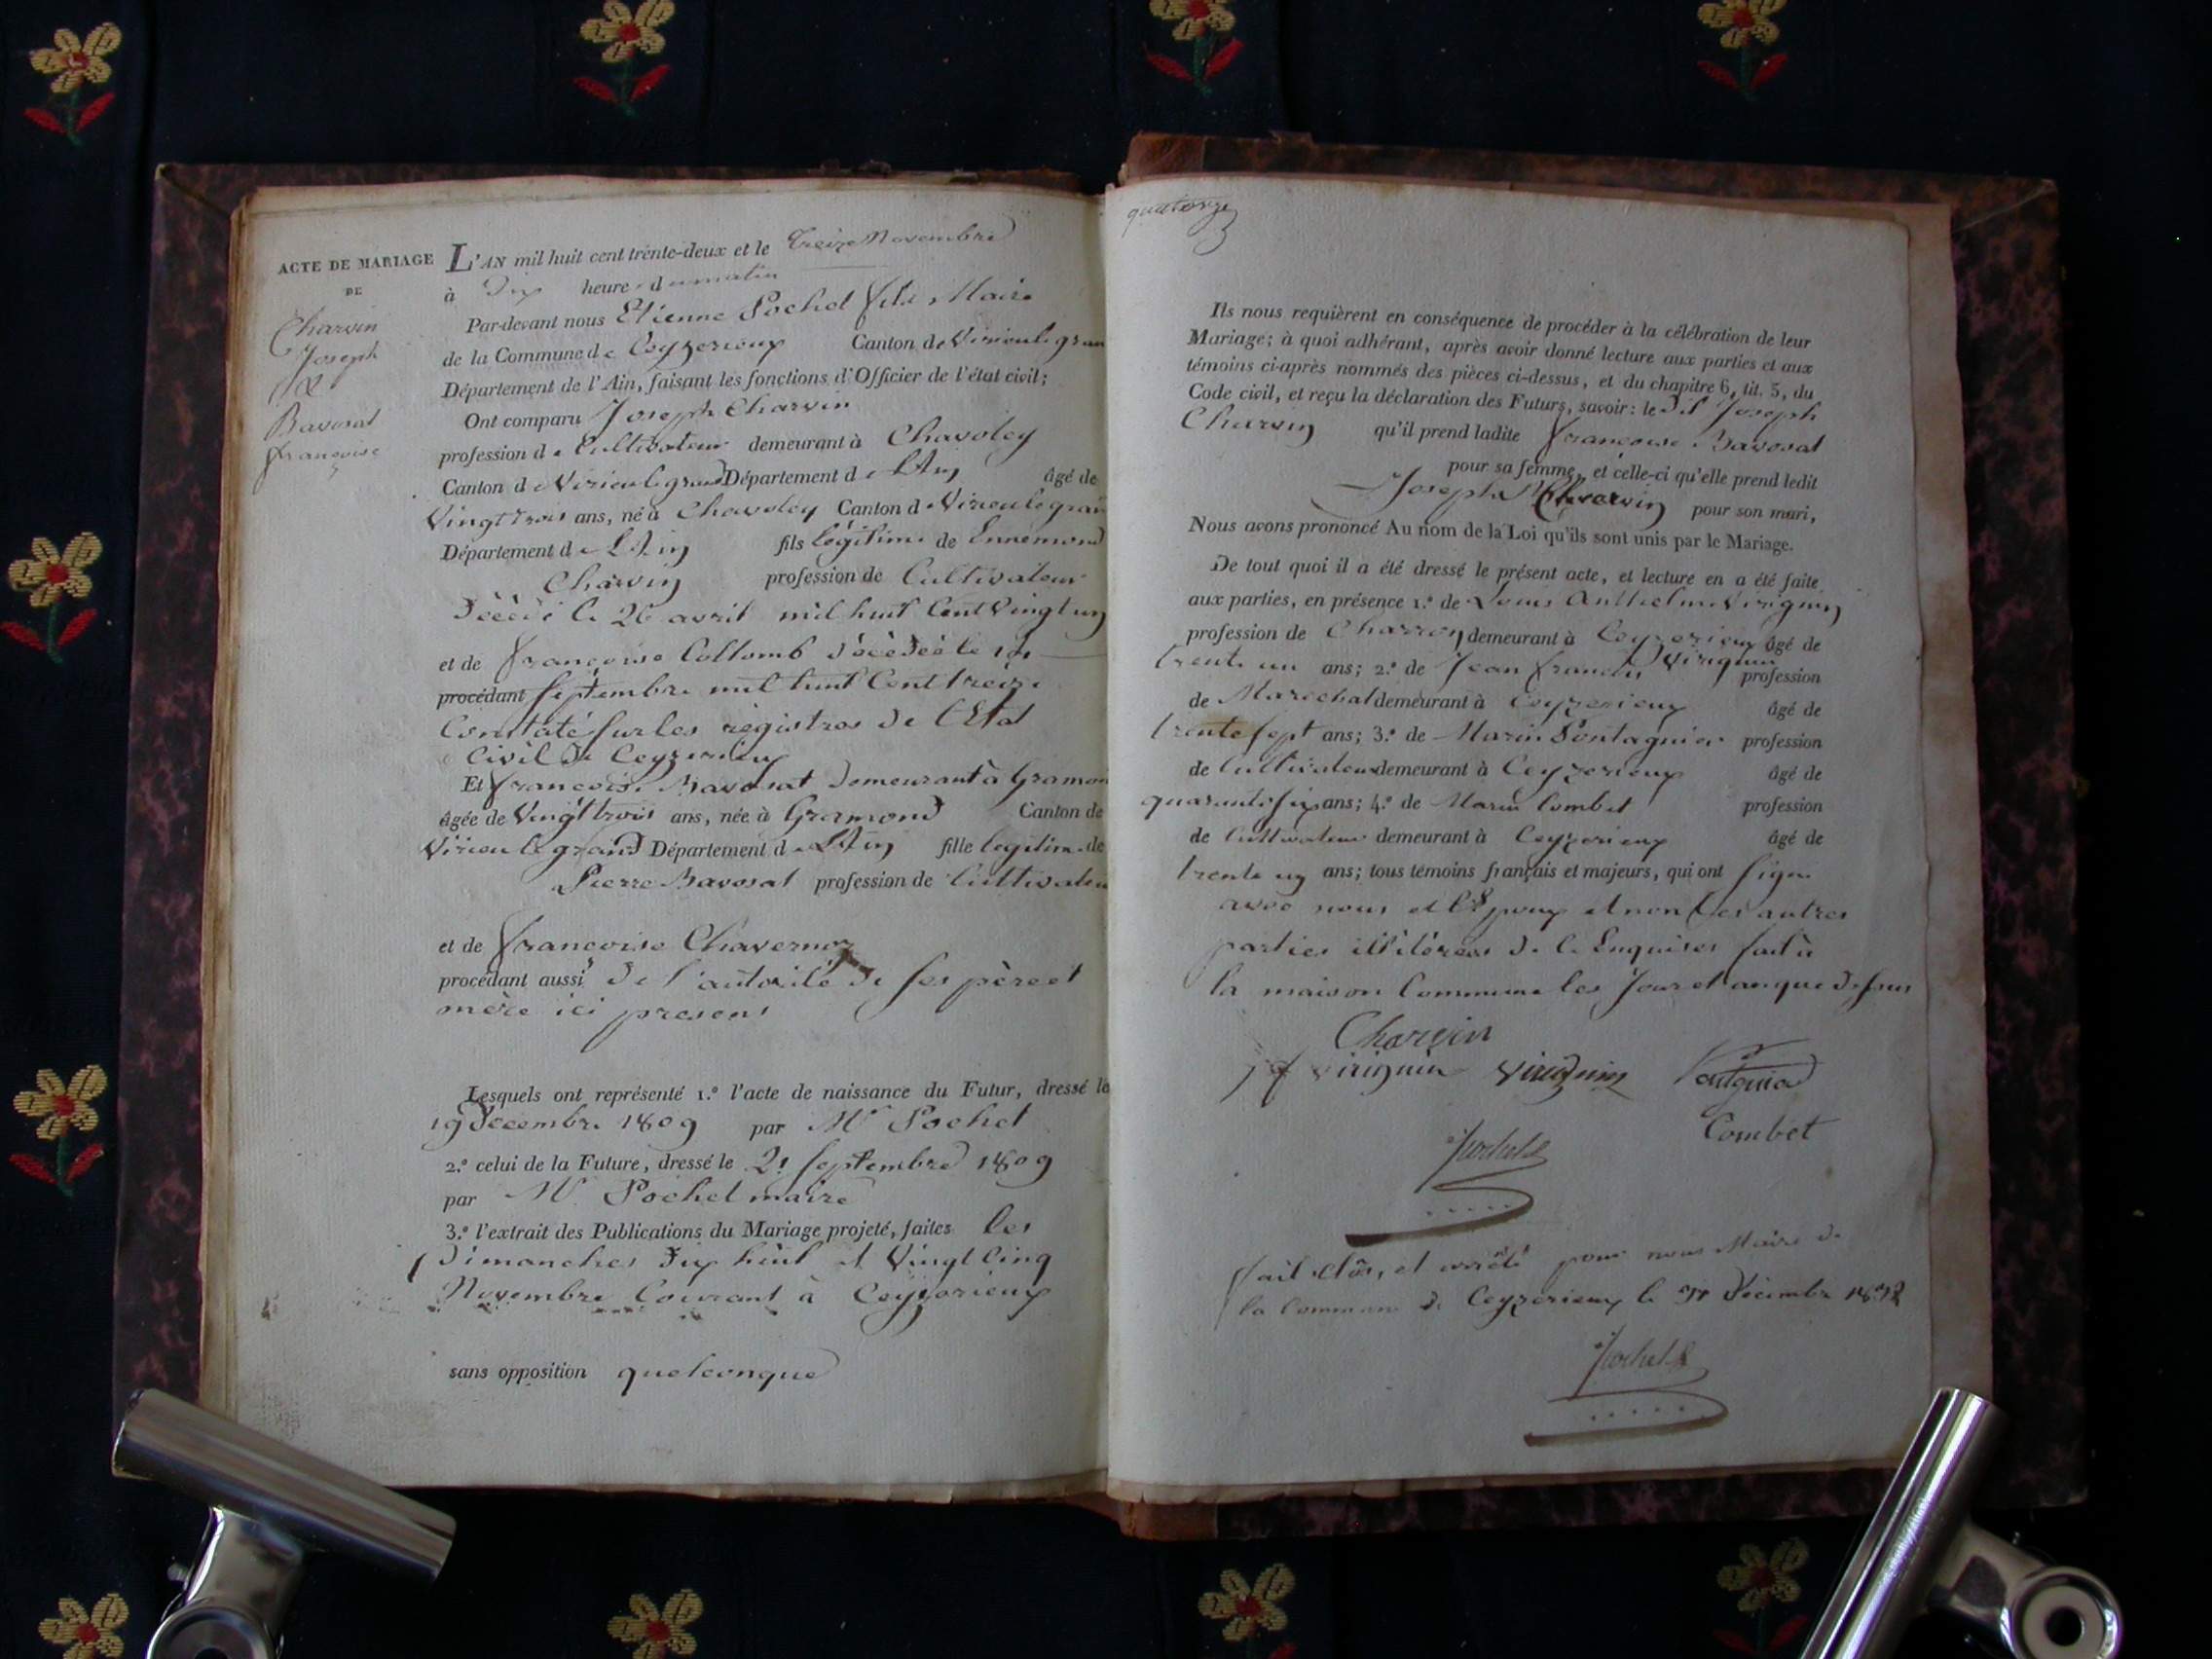 ACTE DE MARIAGE
DE
Charvin
Joseph
&
Bavosat
françoise
L'AN mil huit cent trente-deux et le Treize Novembre
à Dix heures du matin
Par-devant nous Etienne Pochet fils Maire
de la Commune de Ceyzerieux Canton de Virieu le gran
Département de l'Ain, faisant les fonctions d'Officier de l'état civil;
Ont comparu Joseph Charvin
profession de Cultivateur demeurant à Chavoley
Canton de Virieu le grand Département de L'Ain âgé de
Vingt trois ans, né à Chavoley Canton d Virieu le gran
Département de L'Ain fils légitime de Ennemond
Charvin profession de Cultivateur
Décédé le 26 avril mil huit Cent Vingt un
et de françoise Collomb décédée le
procédant septembre mil huit Cent treize
Constaté sur les registres de l'Etat
Civil de Ceyzerieu
Et françoise Bavosat demeurant à Gramon
âgée de Vingt trois ans, née à Gramond Canton de
Virieu le grand Département de L'Ain fille legitime de
Pierre Bavosat profession de Cultivateu
et de françoise Chavernoz
procédant aussi de l'autorité de ses père et
mère ici presens
Lesquels ont représenté 1.º l'acte de naissance du Futur, dressé le
19 Decembre 1809 par Mr Pochet
2.º celui de la Future, dressé le 21 septembre 1809
par Mr Pochet maire
3.º l'extrait des Publications du Mariage projeté, faites les
Dimanches Dix huit et Vingt Cinq
Novembre Courant à Ceyzerieux
sans opposition quelconque
quatorze
Ils nous requièrent en conséquence de procéder à la célébration de leur
Mariage; à quoi adhérant, après avoir donné lecture aux parties et aux
témoins ci-après nommés des pièces ci-dessus, et du chapitre 6, tit. 5, du
Code civil, et reçu la déclaration des Futurs, savoir: le dit Joseph
Charvin qu'il prend ladite françoise Bavosat
pour sa femme, et celle-ci qu'elle prend ledit
Joseph Charvin pour son mari,
Nous avons prononcé Au nom de la Loi qu'ils sont unis par le Mariage.
De tout quoi il a été dressé le présent acte, et lecture en a été faite
aux parties, en présence 1.º de Louis Anthelme Virignin
profession de Charron demeurant à Ceyzerieux âgé de
trente un ans; 2.º de Jean françois Virignin profession
de Marechal demeurant à Ceyzerieux âgé de
trente sept ans; 3.º de Marin Pontagnier profession
de Cultivateur demeurant à Ceyzerieux âgé de
quarante six ans; 4.º de Marin Combet profession
de Cultivateur demeurant à Ceyzerieux âgé de
trente un ans; tous témoins français et majeurs, qui ont signé
avec nous et l'époux et non les autres
parties illitérées de ce Enquises fait à
la maison Commune les Jour et an que dessus
Charvin
jf virignin Virignin
Combet
Pochet
fait clos, et arrêté par nous Maire de
la Commune de Ceyzerieux le 31 Décembre 1832
Pochet